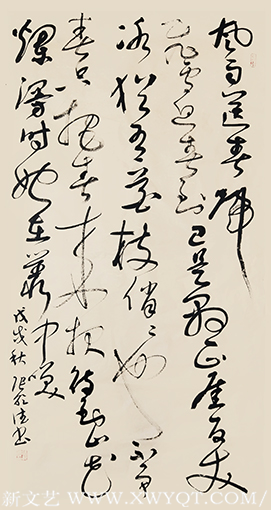 风雨送春歸
飛雪迎春到已是懸崖百丈
冰猶有花枝俏俏也不争
春只把春来报待到山花
爛漫时她在叢中笑
戊戌秋 书
新文艺－WWW.XWYQT.COM/